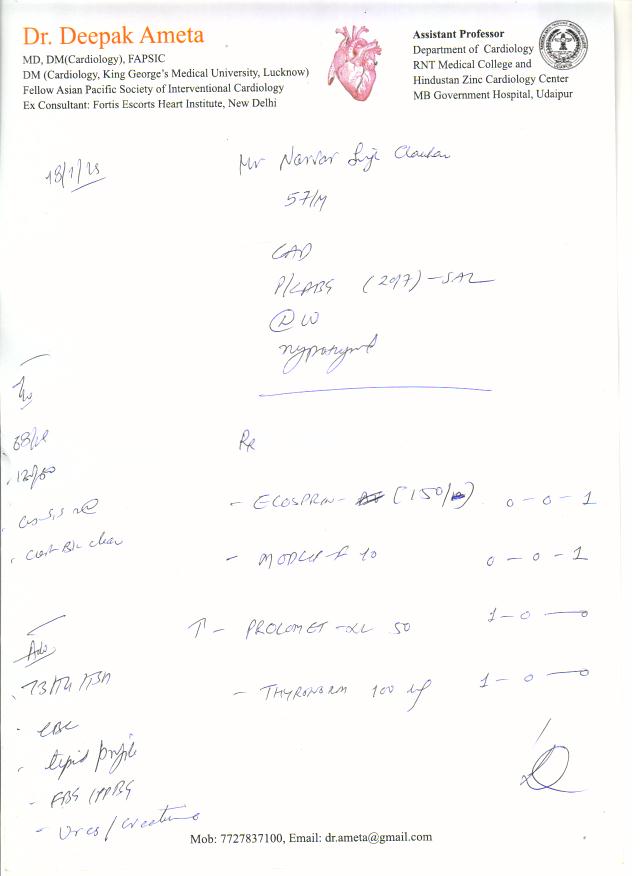 Dr. Deepak Ameta
MD, DM(Cardiology), FAPSIC
DM (Cardiology, King George's Medical University, Lucknow)
Fellow Asian Pacific Society of Interventional Cardiology
Ex Consultant: Fortis Escorts Heart Institute, New Delhi
Assistant Professor
Department of Cardiology
RNT Medical College and
Hindustan Zinc Cardiology Center
MB Government Hospital, Udaipur
18/1/
Mr
57/M
CAD
P/CABG (2017) - SAL
Rx
- ECOSPRIN - (150/ ) 0-0-1
- F 10 0-0-1
↑ - PROLOMET-XL 50 1-0-0
- THYRONORM 100 1-0-0
Chest B/L clear
Adv
T3/T4/TSH
- CBC
- lipid profile
- FBS / PPBS
- Urea / Creatinine
Mob: 7727837100, Email: dr.ameta@gmail.com